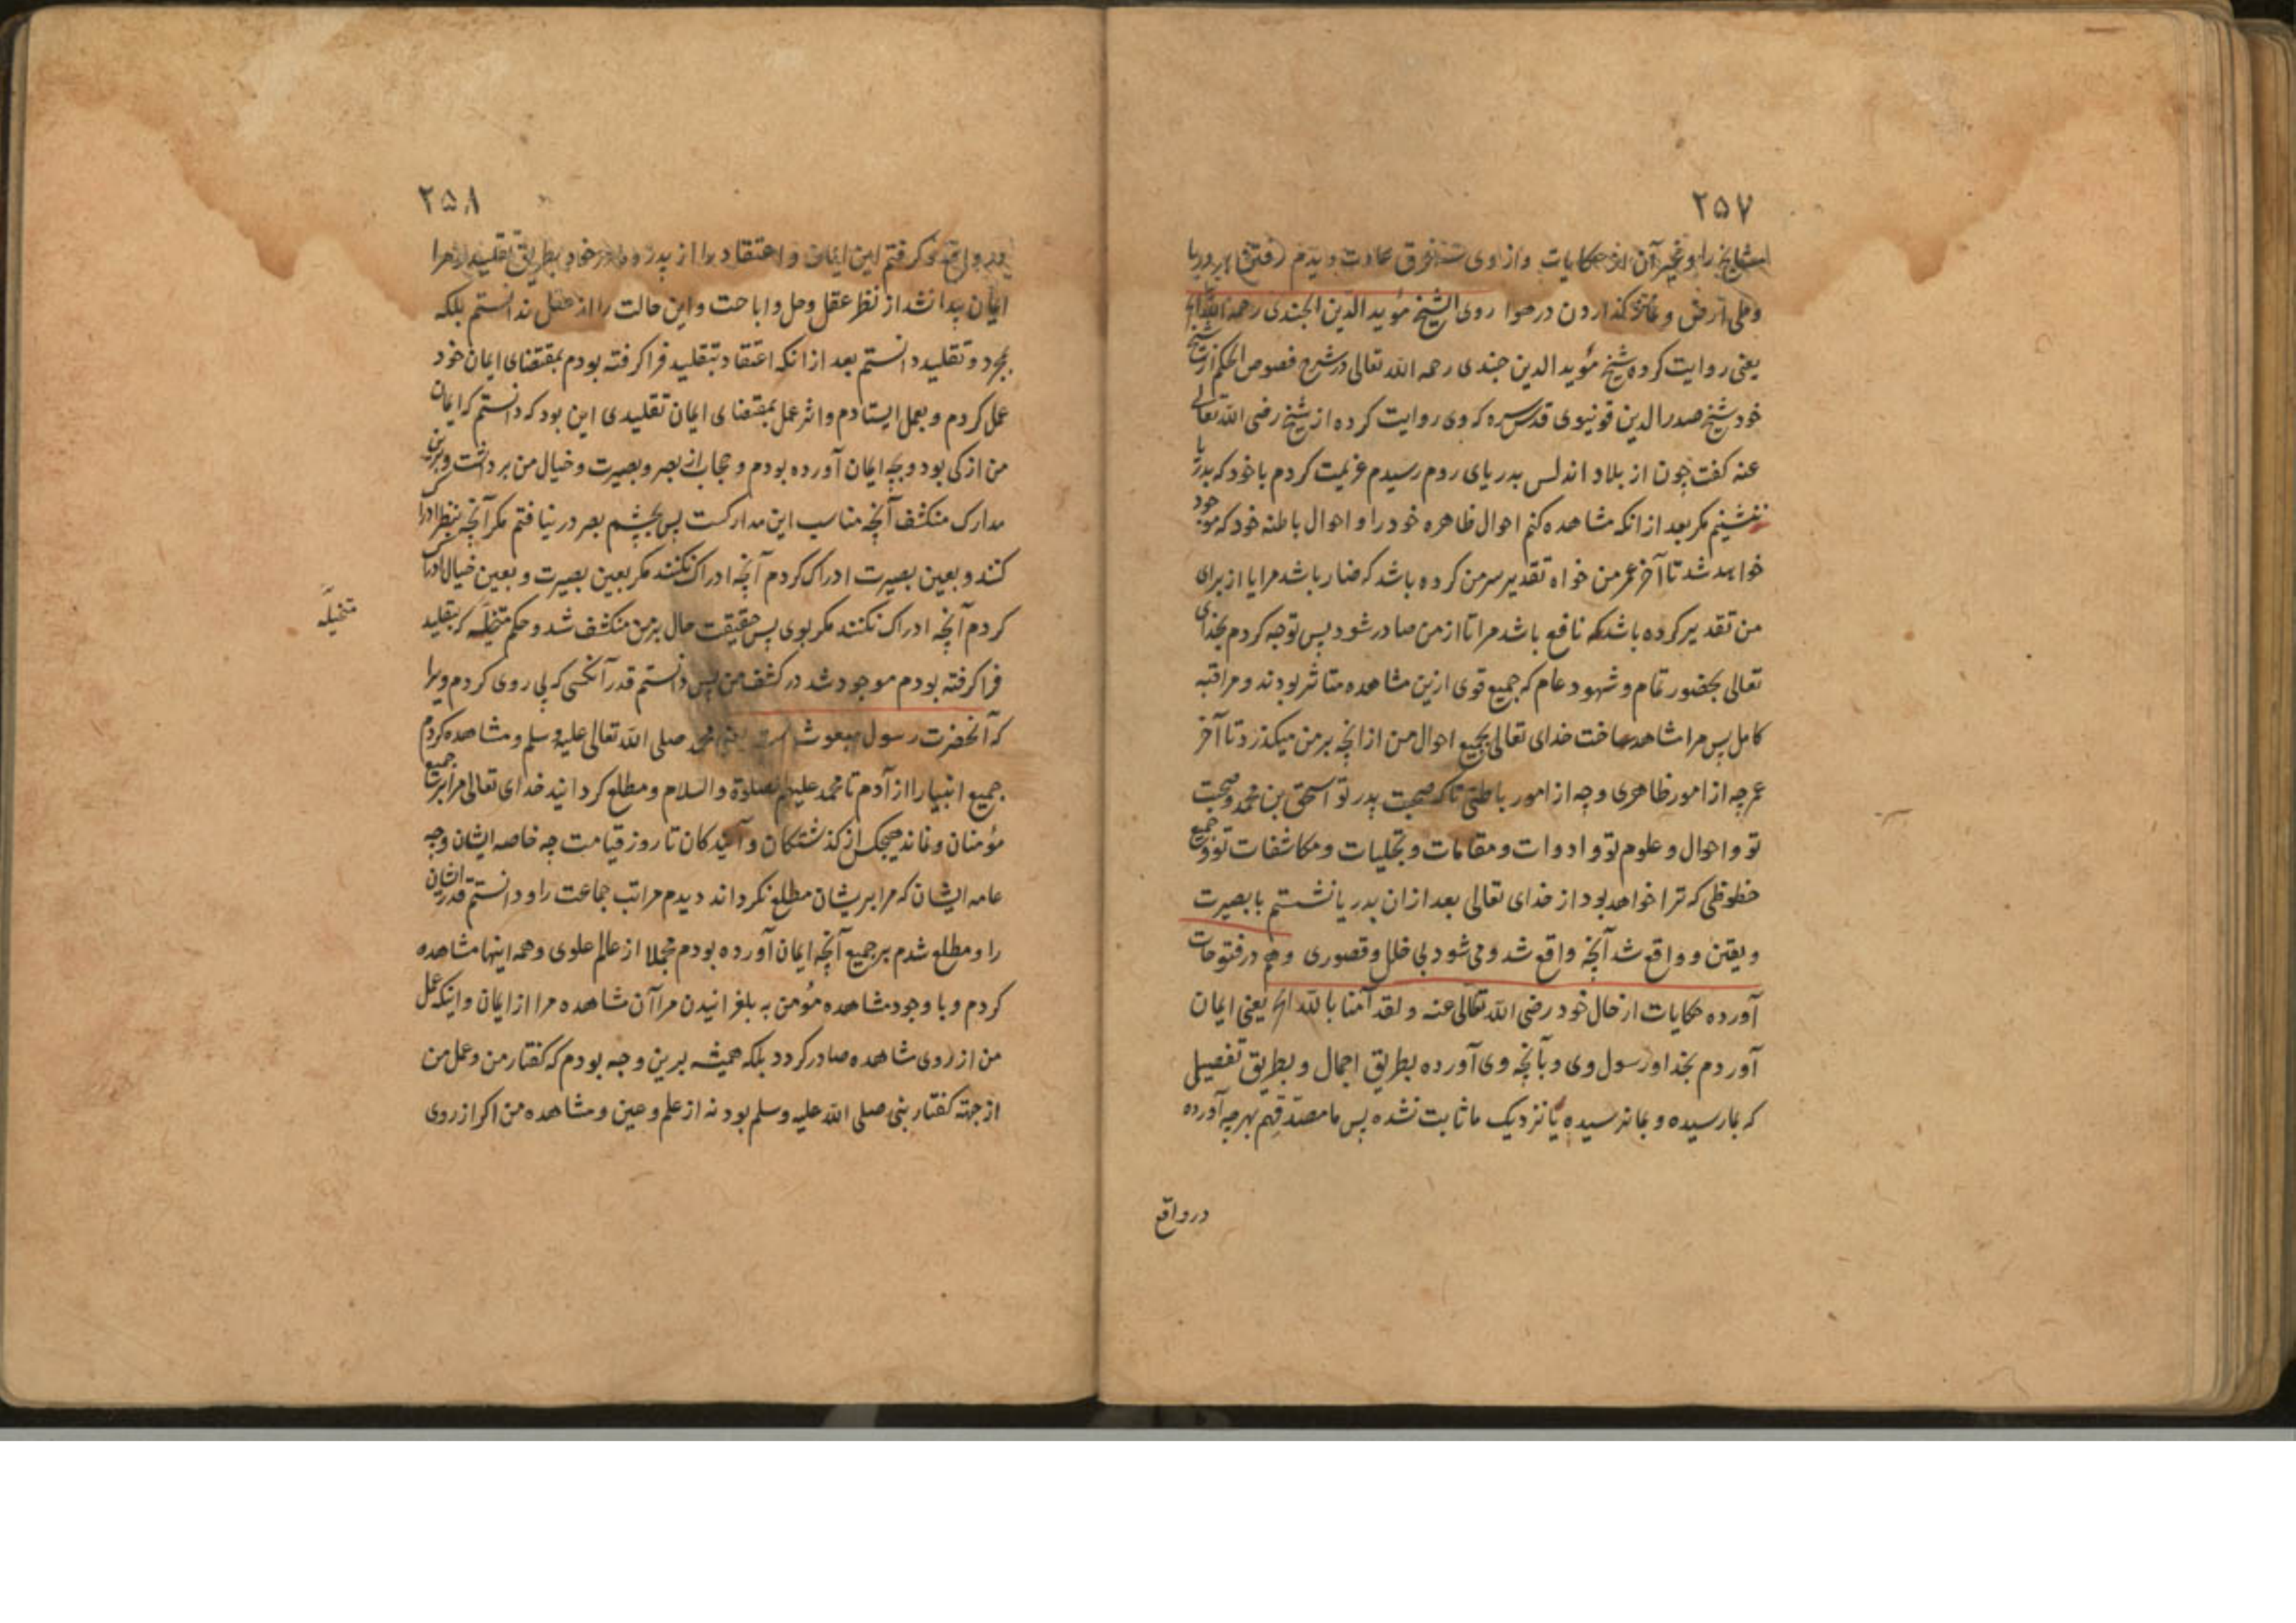 ۲۵۷
مشایخ را و غیر آن از حکایات و از وی خرق عادت دیدم رفتن بر دریا
وطی ارض و نماز گذاردن در هوا روی الشیخ مؤید الدین الجندی رحمه الله الخ
یعنی روایت کرده شیخ مؤید الدین جندی رحمه الله تعالی در شرح فصوص الحکم از شیخ
خود شیخ صدر الدین قونیوی قدس سره که وی روایت کرده از شیخ رضی الله تعالی
عنه کفت چون از بلاد اندلس بدریای روم رسیدم عزیمت کردم با خود که بدریا
ننشینم مکر بعد از انکه مشاهده کنم احوال ظاهره خود را و احوال باطنه خود که موجود
خواهد شد تا آخر عمر من خواه تقدیر سر من کرده باشد که ضار باشد مرا یا از برای
من تقدیر کرده باشد که نافع باشد مرا تا از من صادر شود پس توجه کردم بخدای
تعالی بحضور تمام و شهود عام که جمیع قوی ازین مشاهده متاثر بودند و مراقبه
کامل پس مرا مشاهد ساخت خدای تعالی بجمیع احوال من از انچه بر من میکذرد تا آخر
عمر چه از امور ظاهری و چه از امور باطنی تا که صحبت پدر تو اسحق بن محمد و صحبت
تو و احوال و علوم تو و ادوات و مقامات و تجلیات و مکاشفات تو و جمیع
حظوظی که ترا خواهد بود از خدای تعالی بعد ازان بدریا نشستم با بصیرت
و یقین و واقع شد آنچه واقع شد و می شود بی خلل و قصوری و هم در فتوحات
آورده حکایات از حال خود رضی الله تعالی عنه و لقد آمنا بالله الخ یعنی ایمان
آوردم بخدا و رسول وی و بآنچه وی آورده بطریق اجمال و بطریق تفصیل
که بما رسیده و بما نرسیده یا نزدیک ما ثابت نشده پس ما مصدقیم بهر چه آورده
در واقع
۲۵۸
در واقع فرا کرفتم این ایمان و اعتقاد را از پدر و مادر خود بطریق تقلید و مرا
ایمان پیدا نشد از نظر عقل وحل و اباحت و این حالت را از عقل ندانستم بلکه
بمجرد و تقلید دانستم بعد از انکه اعتقاد بتقلید فرا کرفته بودم بمقتضای ایمان خود
عمل کردم و بعمل ایستادم و اثر عمل بمقتضای ایمان تقلیدی این بود که دانستم که ایمان
من از کی بود و بچه ایمان آورده بودم و حجاب از بصر و بصیرت و خیال من برداشت و برین
مدارک منکشف آنچه مناسب این مدارکست پس بچشم بصر در نیافتم مکر آنچه بنظر ادراک
کنند و بعین بصیرت ادراک کردم آنچه ادراک نکنند مکر بعین بصیرت و بعین خیال ادراک
کردم آنچه ادراک نکنند مکر بوی پس حقیقت حال بر من منکشف شد و حکم متخیله که بتقلید
متخیله
فرا کرفته بودم موجود شد در کشف من پس دانستم قدر آنکسی که پی روی کردم ویرا
که آنحضرت رسول مبعوث یعنی محمد صلی الله تعالی علیه وسلم و مشاهده کردم
جمیع انبیا را از آدم تا محمد علیهم الصلوة والسلام و مطلع کردانید خدای تعالی مرا بر جمیع
مؤمنان و نماند هیچکس از کذشتکان و آیندکان تا روز قیامت چه خاصه ایشان و چه
عامه ایشان که مرا بریشان مطلع نکرداند دیدم مراتب جماعت را و دانستم قدر ایشان
را و مطلع شدم بر جمیع آنچه ایمان آورده بودم مجملا از عالم علوی و همه اینها مشاهده
کردم و با وجود مشاهده مؤمن به بلغزانیدن مرا آن مشاهده مرا از ایمان و اینکه عمل
من از روی مشاهده صادر کردد بلکه همیشه برین وجه بودم که کفتار من و عمل من
از جهته کفتار نبی صلی الله علیه وسلم بود نه از علم و عین و مشاهده من اکر از روی